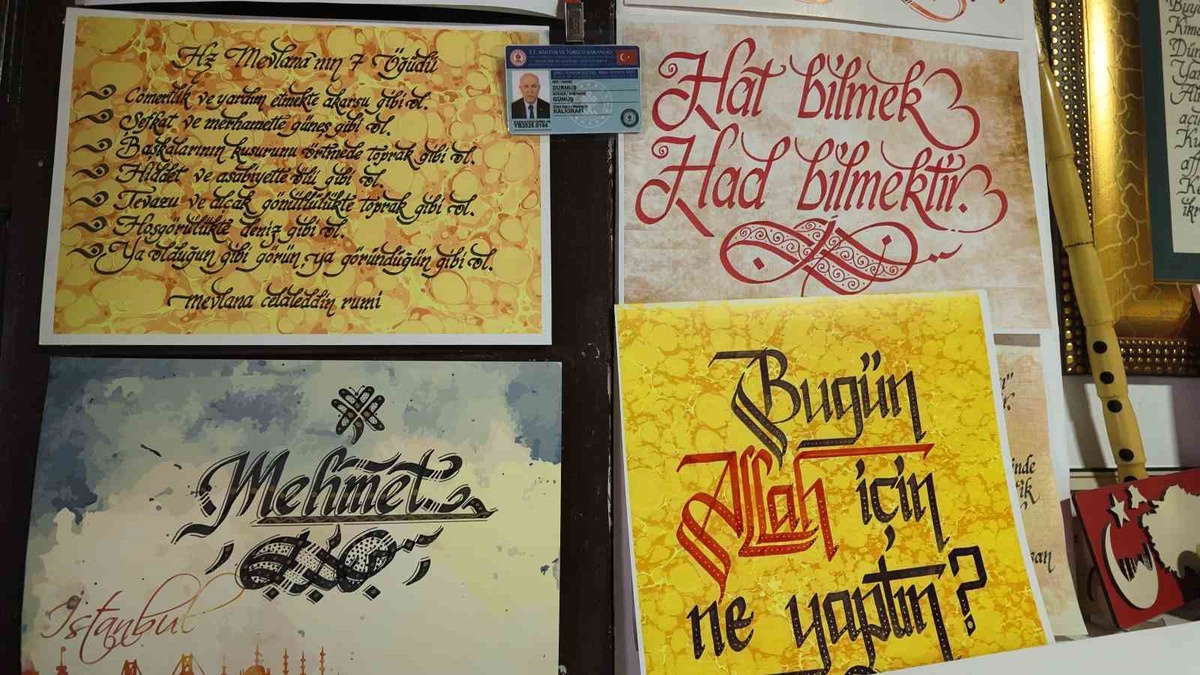 Hz Mevlana'nın 7 Öğüdü
Cömertlik ve yardım etmekte akarsu gibi ol.
Şefkat ve merhamette güneş gibi ol.
Başkalarının kusurunu örtmede toprak gibi ol.
Hiddet ve asabiyette ölü gibi ol.
Tevazu ve alçak gönüllülükte toprak gibi ol.
Hoşgörülükte deniz gibi ol.
Ya olduğun gibi görün, ya göründüğün gibi ol.
mevlana celaleddin rumi
T.C. KÜLTÜR VE TURİZM BAKANLIĞI
DURMUŞ
GÜMÜŞ
KALİGRAFİ
Hat bilmek
Had bilmektir.
Mehmet
Istanbul
Bugün
Allah için
ne yaptın?